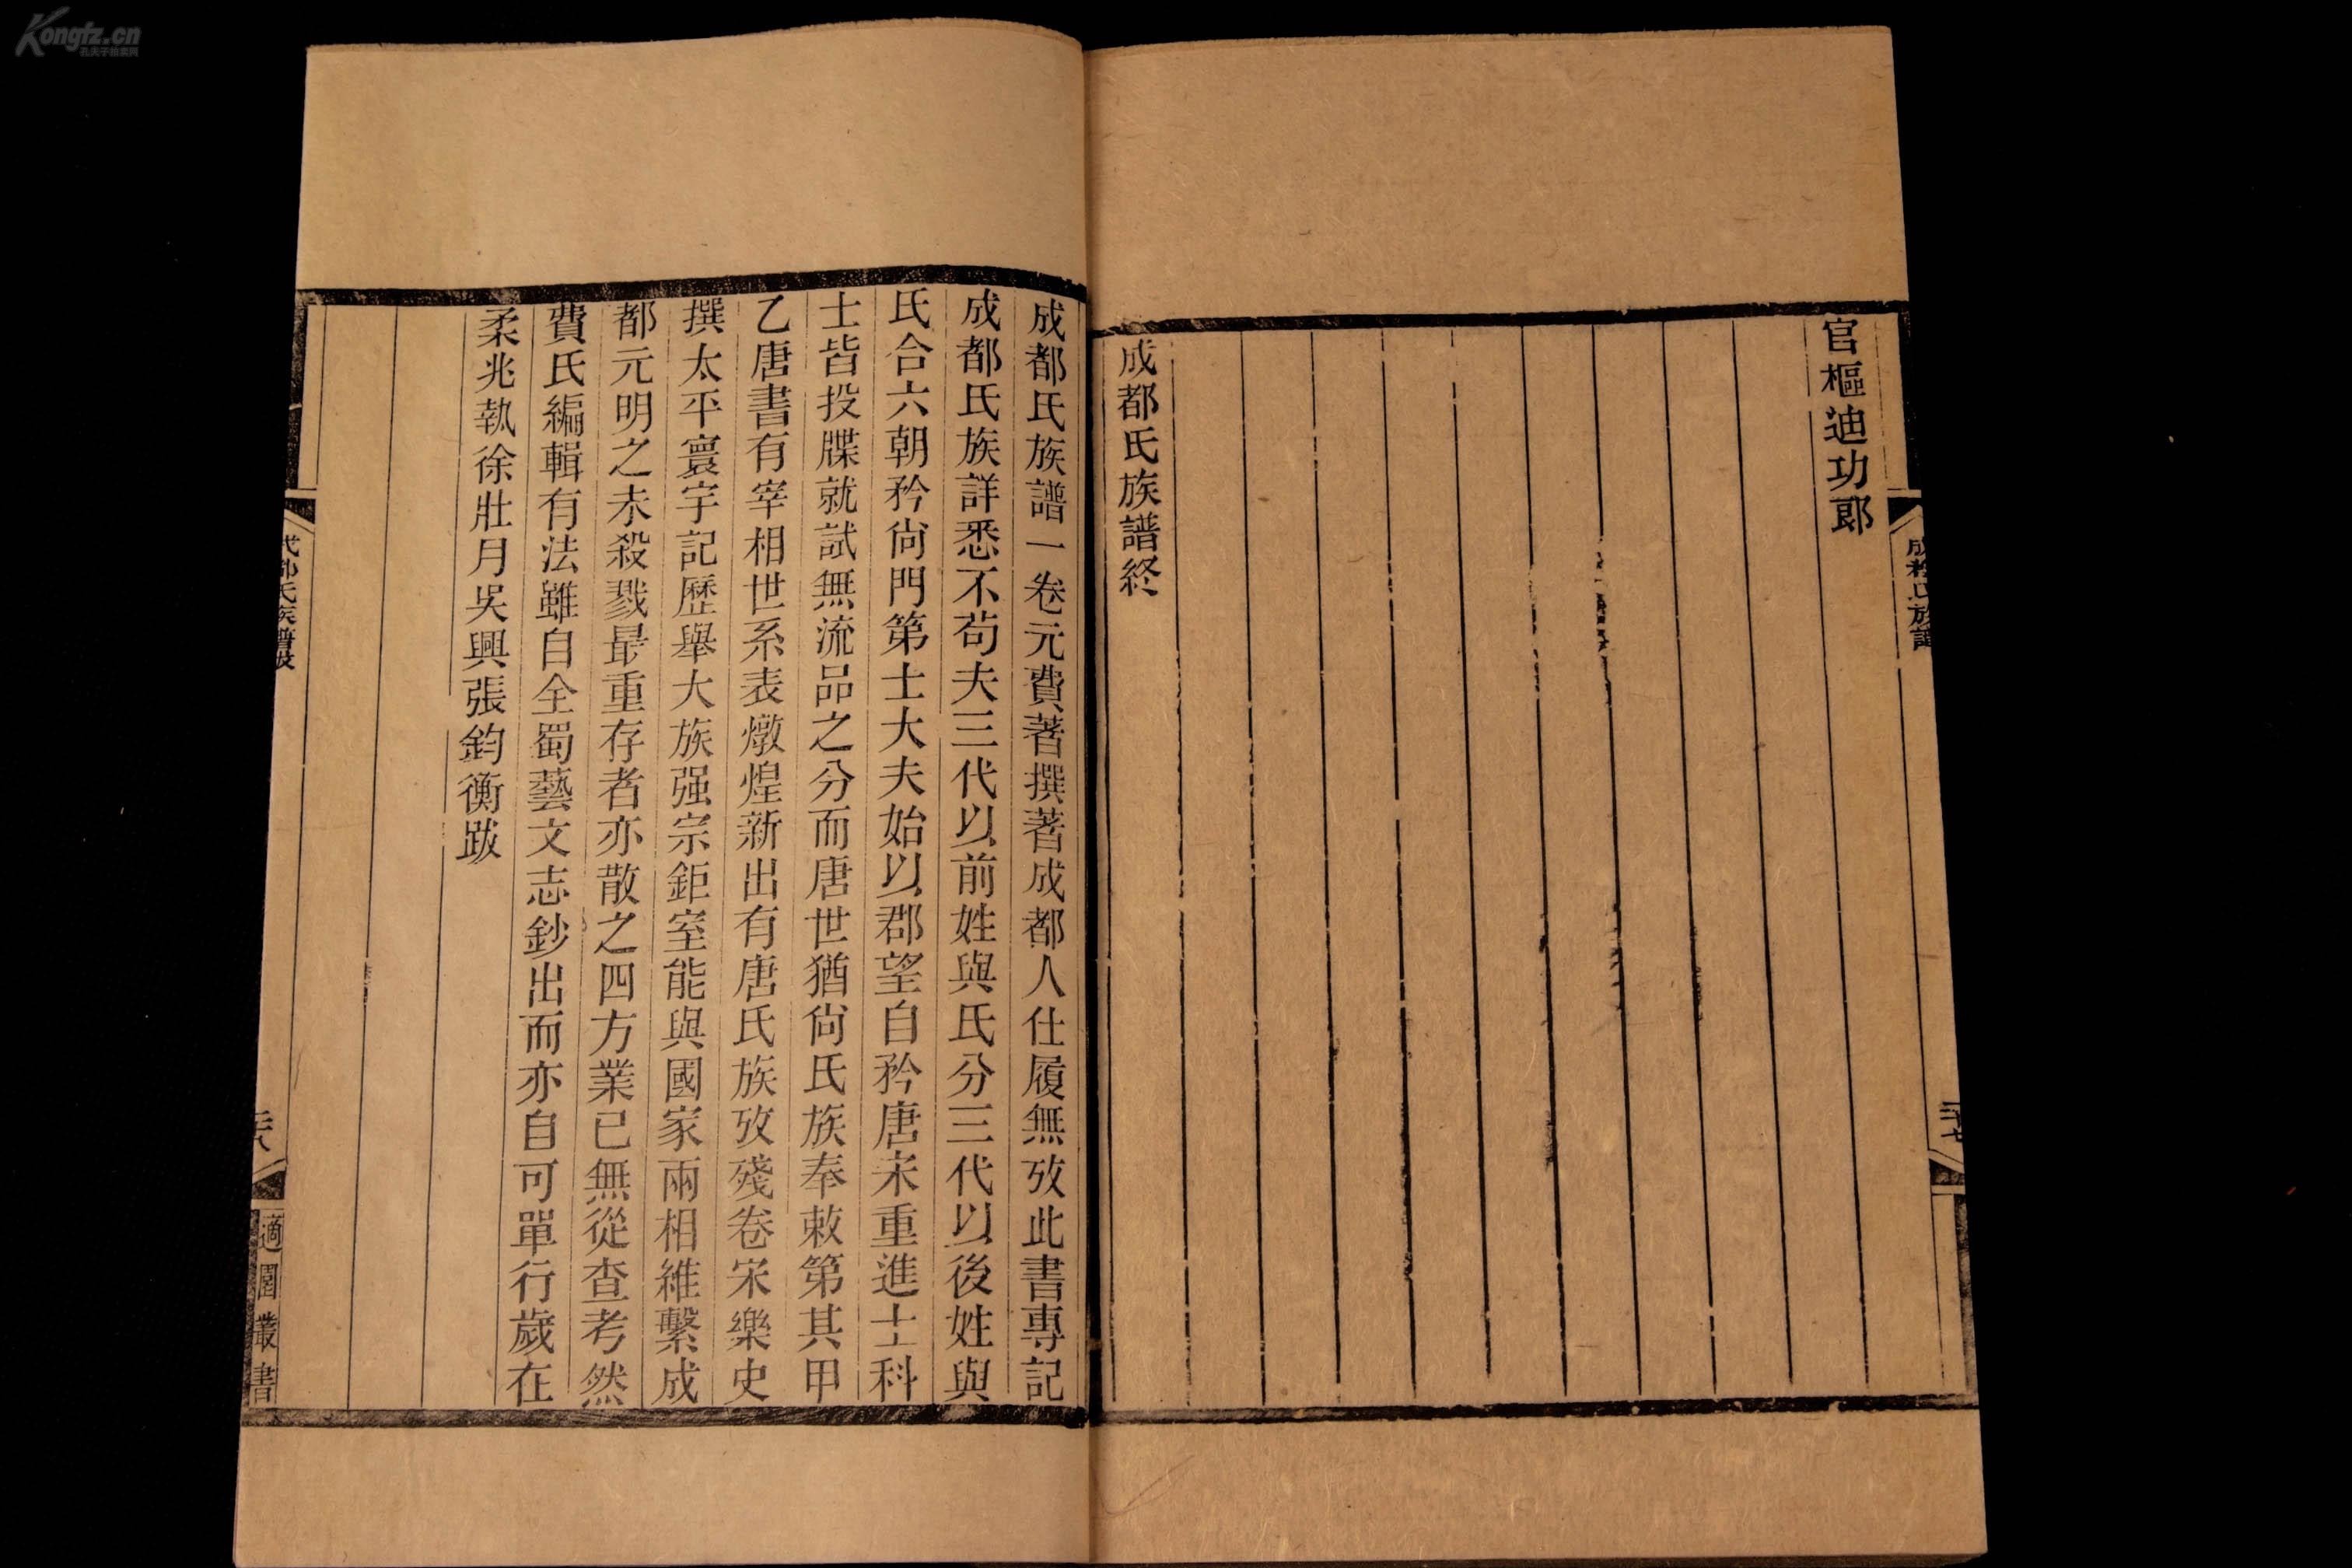 官樞迪功郎
成都氏族譜終
成都氏族譜
二十七
成都氏族譜一卷元費著撰著成都人仕履無攷此書專記
成都氏族詳悉不苟夫三代以前姓與氏分三代以後姓與
氏合六朝矜尙門第士大夫始以郡望自矜唐宋重進士科
士皆投牒就試無流品之分而唐世猶尙氏族奉敕第其甲
乙唐書有宰相世系表燉煌新出有唐氏族攷殘卷宋樂史
撰太平寰宇記歷舉大族强宗鉅室能與國家兩相維繫成
都元明之未殺戮最重存者亦散之四方業已無從查考然
費氏編輯有法雖自全蜀藝文志鈔出而亦自可單行歲在
柔兆執徐壯月吳興張鈞衡跋
成都氏族譜跋
二十八
適園叢書
Kongfz.cn